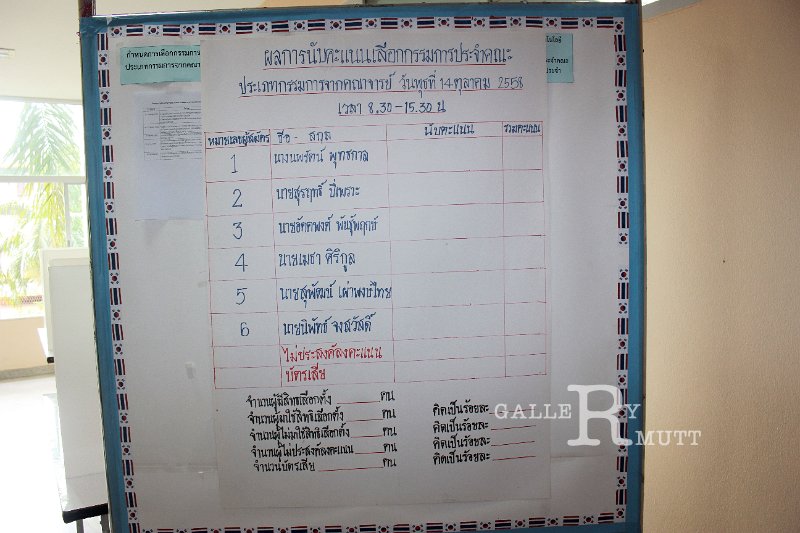 ผลการนับคะแนนเลือกกรรมการประจำคณะ
ประเภทกรรมการจากคณาจารย์ วันพุธที่ 14 ตุลาคม 2558
เวลา 8.30 - 15.30 น
กำหนดการเลือกกรรมการ
ประเภทกรรมการจากคณา
หมายเลขผู้สมัคร ชื่อ - สกุล นับคะแนน รวมคะแนน
1 นางนพรัตน์ พุทธกาล
2 นายสุรฤทธิ์ ปี่เพราะ
3 นายอัคคพงศ์ พันธุ์พฤกษ์
4 นายเมธา ศิริกูล
5 นายสุพัฒน์ เผ่าพงษ์ไทย
6 นายนิพัทธ์ จงสวัสดิ์
ไม่ประสงค์ลงคะแนน
บัตรเสีย
จำนวนผู้มีสิทธิเลือกตั้ง คน คิดเป็นร้อยละ
จำนวนผู้มาใช้สิทธิเลือกตั้ง คน คิดเป็นร้อยละ
จำนวนผู้ไม่มาใช้สิทธิเลือกตั้ง คน คิดเป็นร้อยละ
จำนวนผู้ไม่ประสงค์ลงคะแนน คน คิดเป็นร้อยละ
จำนวนบัตรเสีย คน คิดเป็นร้อยละ
GALLERY
RMUTT